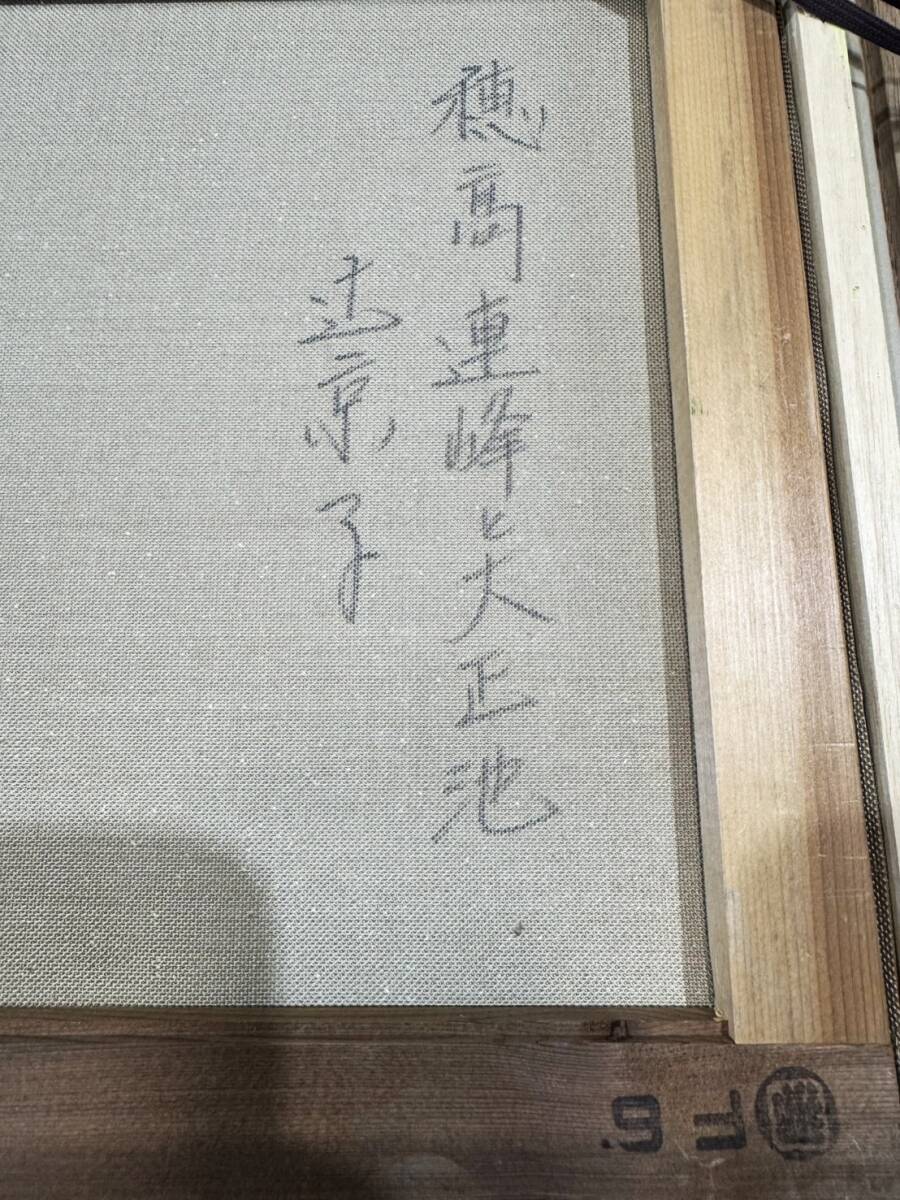 穂高連峰と大正池
辻京子
F6